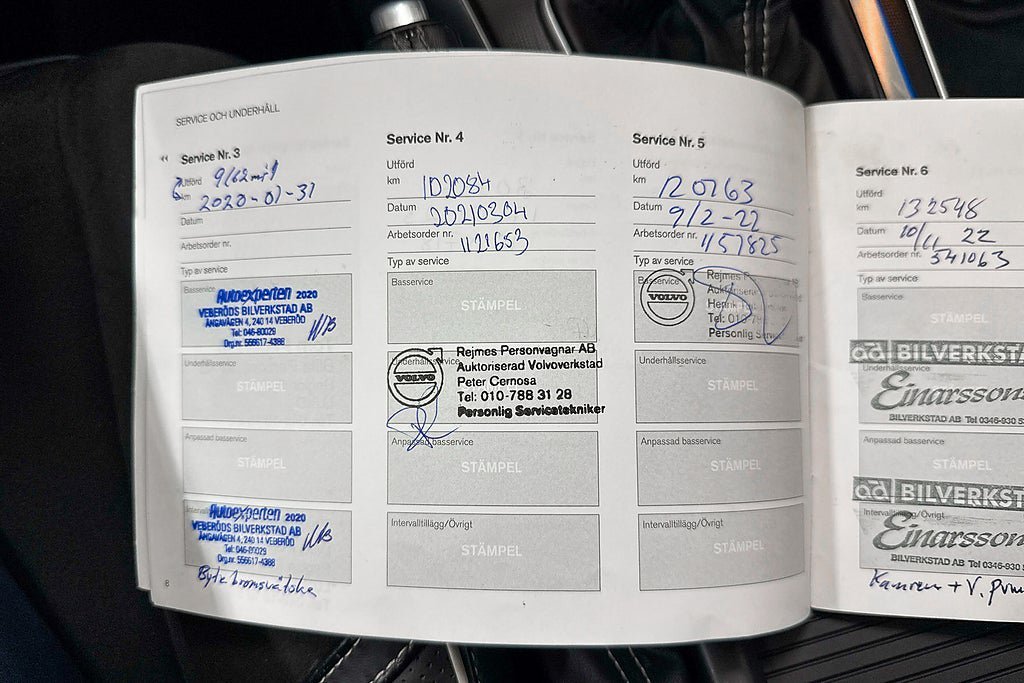 SERVICE OCH UNDERHÅLL
Service Nr. 3
Utförd 9162 mil
km
2020-01-31
Datum
Arbetsorder nr.
Typ av service
Basservice
Autoexperten 2020
VEBERÖDS BILVERKSTAD AB
ÄNGAVÄGEN 4, 240 14 VEBERÖD
Tel: 046-80029
Org.nr: 556617-4388
Underhållsservice
STÄMPEL
Anpassad basservice
STÄMPEL
Autoexperten 2020
VEBERÖDS BILVERKSTAD AB
ÄNGAVÄGEN 4, 240 14 VEBERÖD
Tel: 046-80029
Org.nr: 556617-4388
Byte bromsvätska
8
Service Nr. 4
Utförd
km 102084
Datum 20210304
Arbetsorder nr. 1121653
Typ av service
Basservice
STÄMPEL
Underhållsservice
VOLVO
Rejmes Personvagnar AB
Auktoriserad Volvoverkstad
Peter Cernosa
Tel: 010-788 31 28
Personlig Servicetekniker
Anpassad basservice
STÄMPEL
Intervalltillägg/Övrigt
STÄMPEL
Service Nr. 5
Utförd
km 120763
Datum 9/2-22
Arbetsorder nr. 1157825
Typ av service
Basservice
VOLVO
Rejmes
Henrik
Tel: 010-
Personlig
Underhållsservice
STÄMPEL
Anpassad basservice
STÄMPEL
Intervalltillägg/Övrigt
STÄMPEL
Service Nr. 6
Utförd
km 132548
Datum 10/11 22
Arbetsorder nr. 341063
Typ av service
Basservice
STÄMPEL
ad BILVERKSTA
Underhållsservice
Einarsson
BILVERKSTAD AB Tel 0346-930 5
Anpassad basservice
STÄMPEL
ad BILVERKST
Intervalltillägg/Övrigt
Einarsson
BILVERKSTAD AB Tel 0346-930 5
Kamrem + V. pum